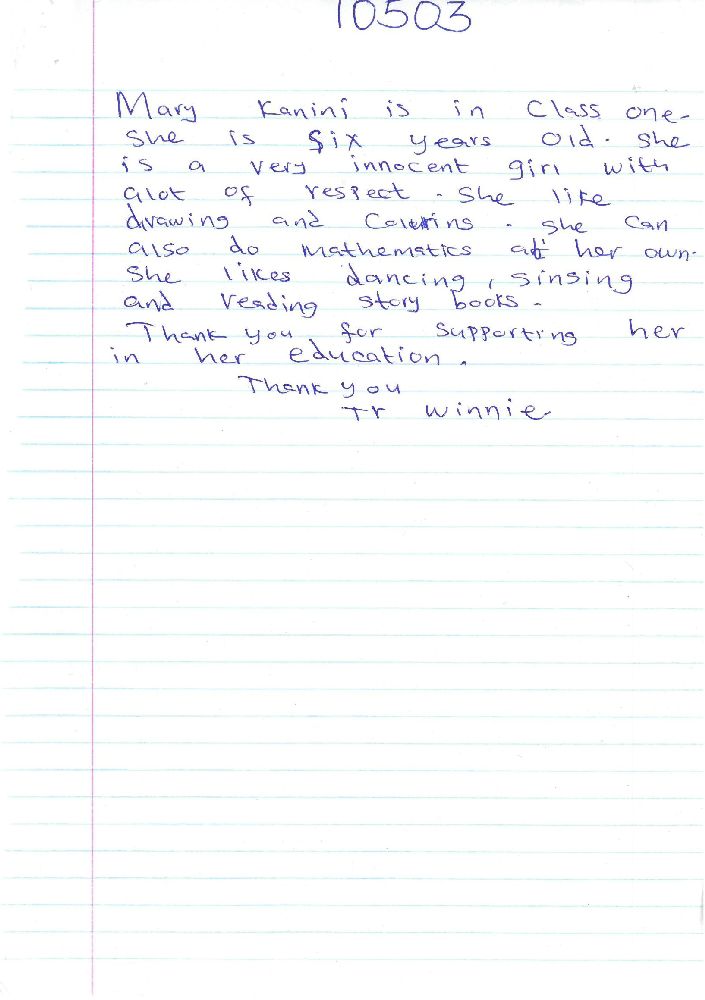 10503
Mary Kanini is in Class one.
she is six years old. she
is a very innocent girl with
alot of respect. She like
drawing and Colorins. she can
also do mathematics at her own.
She likes dancing, sinsing
and reading story books.
Thank you for supporting her
in her education.
Thank you
Tr Winnie